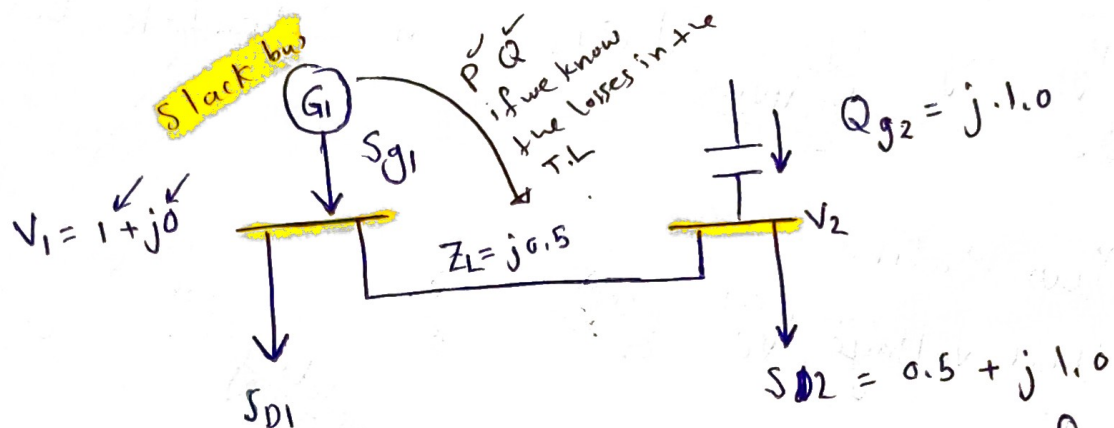 Slack bus
G1
Sg1
P Q
if we know
the losses in the
T.L
Qg2 = j.1.0
V1 = 1 + j0
ZL = j0.5
V2
SD1
SD2 = 0.5 + j 1.0